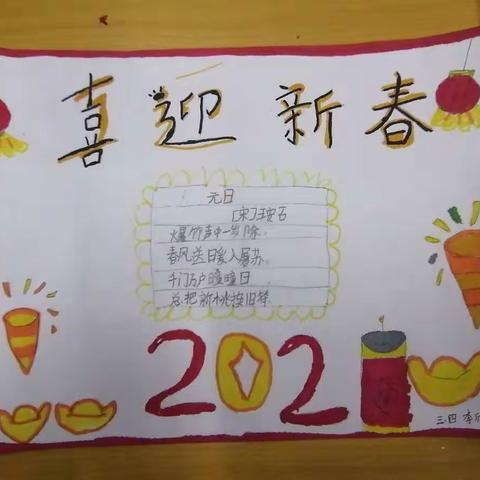 喜迎新春
元日
[宋]王安石
爆竹声中一岁除.
春风送暖入屠苏.
千门万户曈曈日
总把新桃换旧符
2021
三.四 李